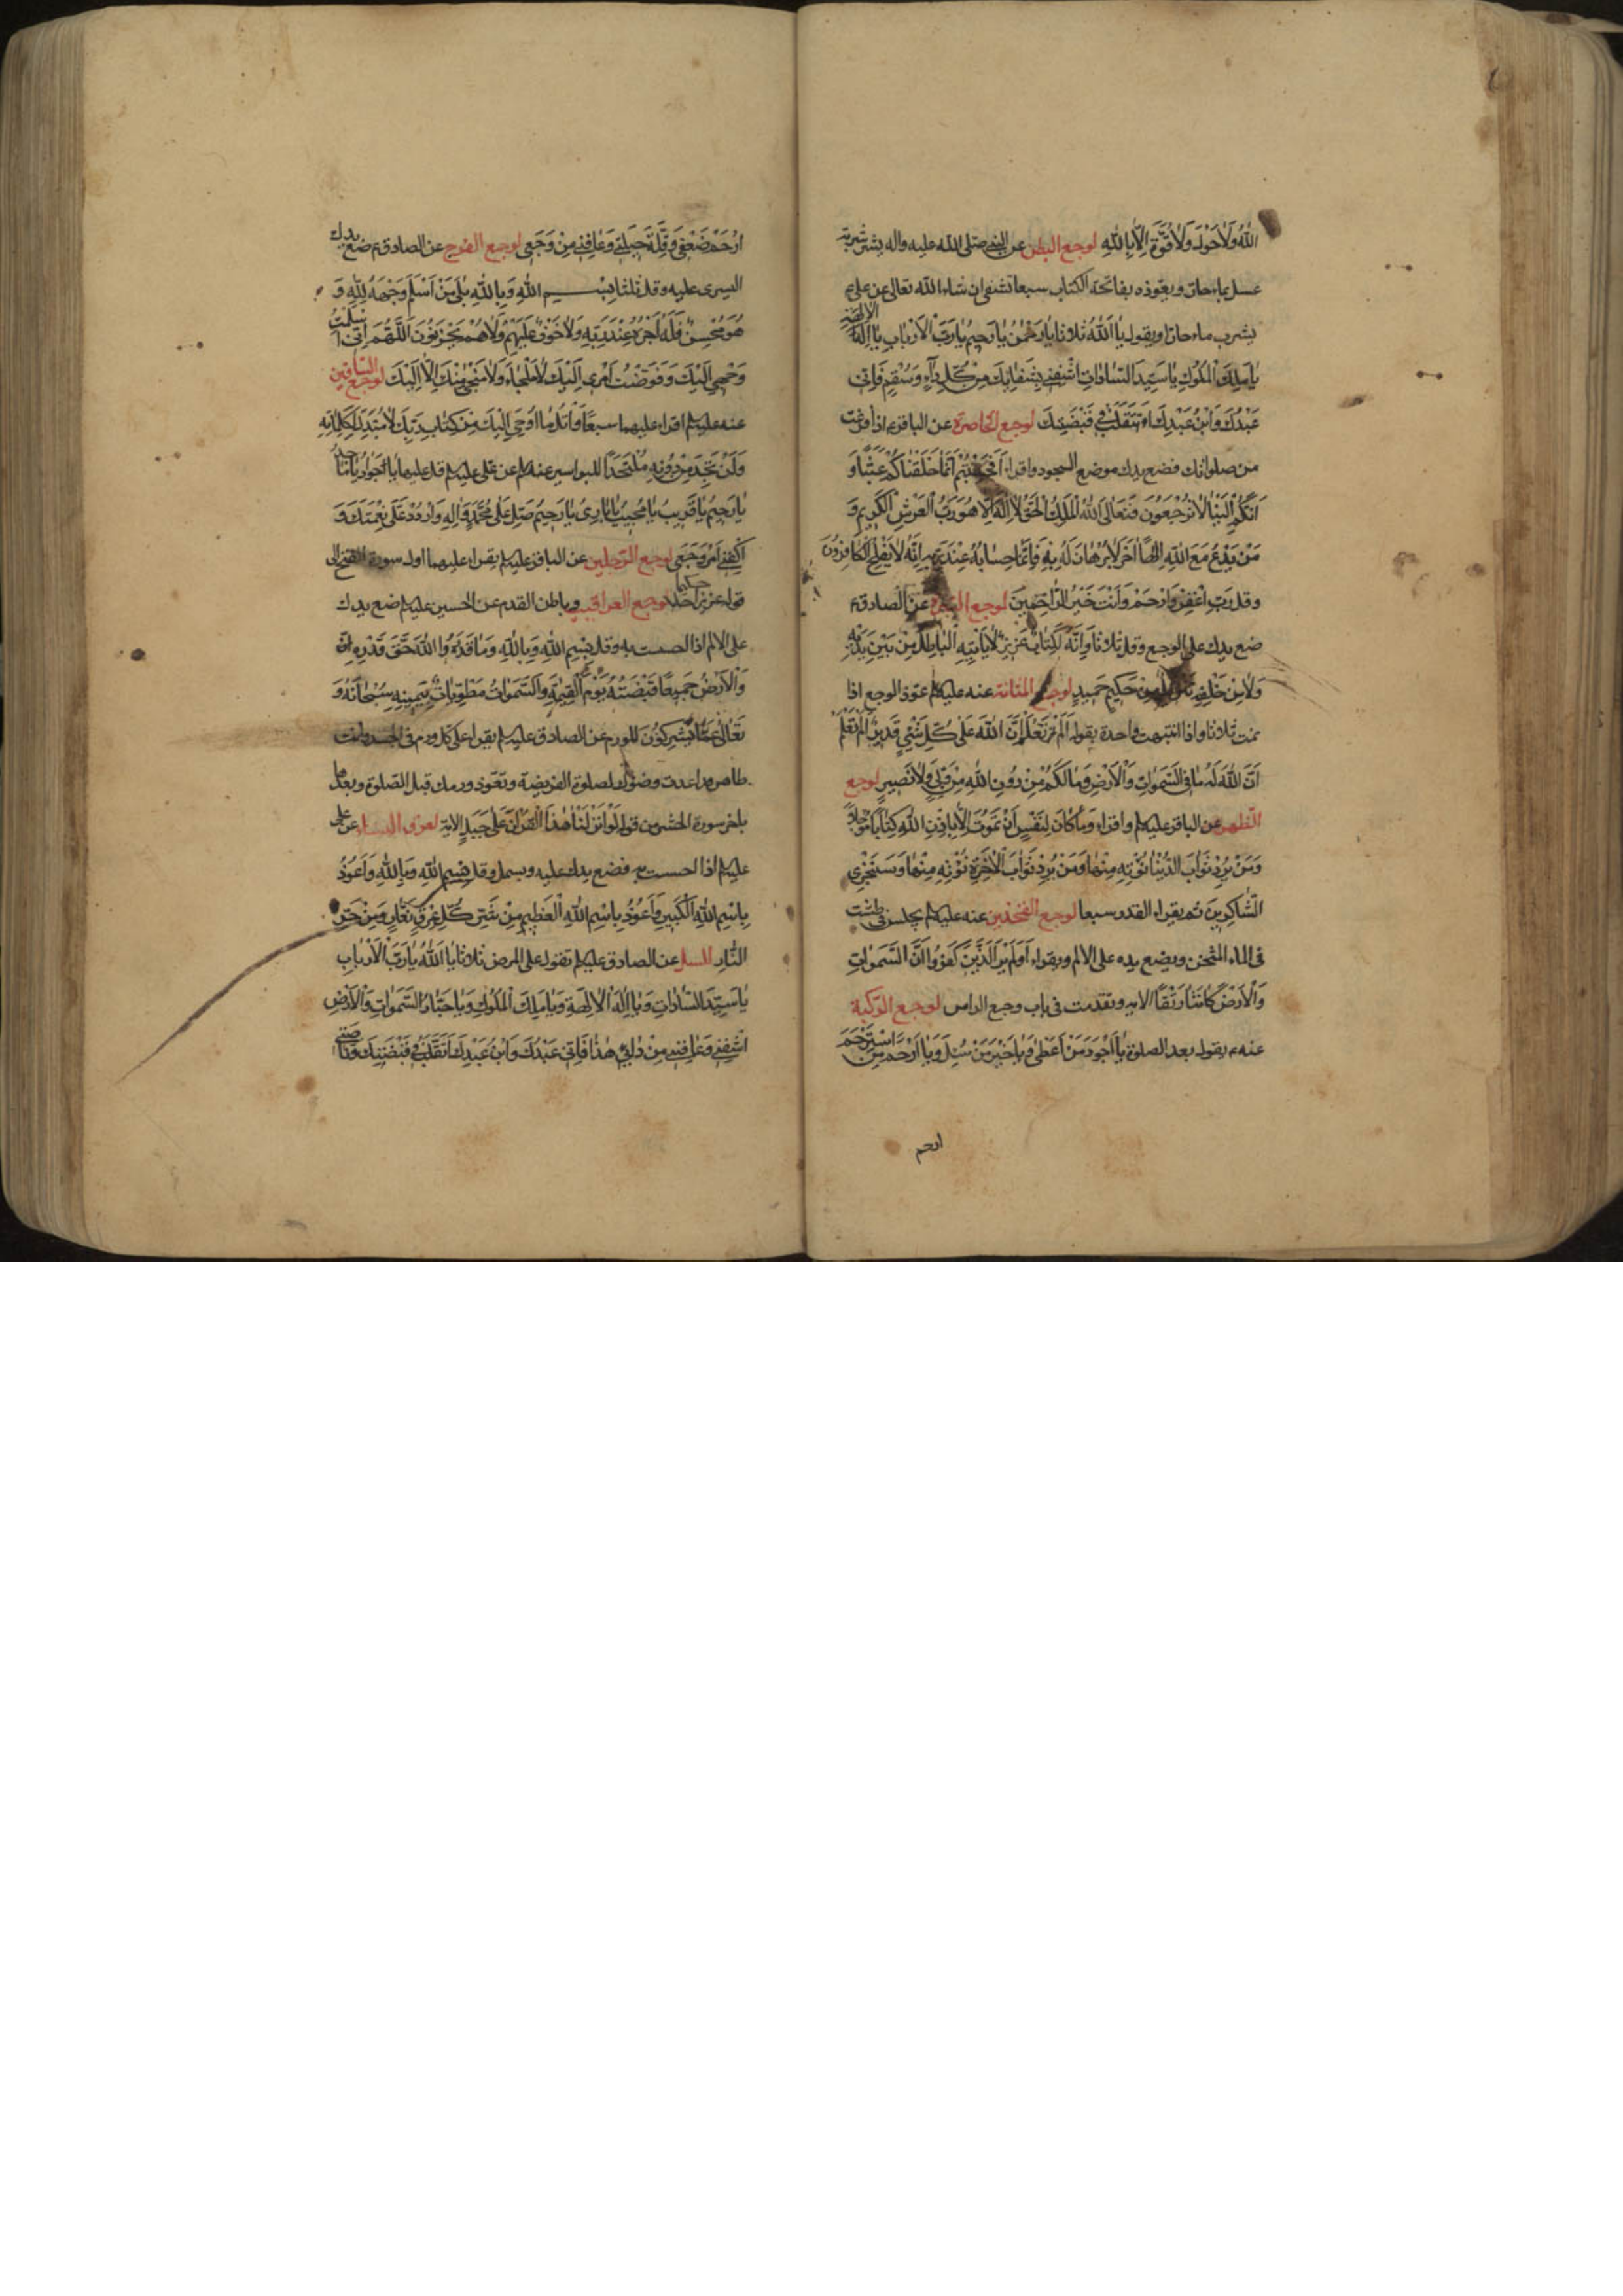 اللّٰهُ وَلَا حَوْلَ وَلَا قُوَّةَ اِلَّا بِاللّٰهِ لوجع البطن عن النبي صلى الله عليه واله يشرب شربة
عسل بماء حار ويعوذه بفاتحة الكتاب سبعا تشفى ان شاء الله تعالى عن على ع
يشرب ماء حارا ويقول يَا اَللّٰهُ ثلاثا يَا رَحْمٰنُ يَا رَحِيمُ يَا رَبَّ الْاَرْبَابِ يَا اِلٰهَ الْاٰلِهَةِ
يَا مَلِكَ الْمُلُوكِ يَا سَيِّدَ السَّادَاتِ اشْفِنِي بِشَفَائِكَ مِنْ كُلِّ دَاءٍ وَسُقْمٍ فَاِنّى
عَبْدُكَ وَابْنُ عَبْدِكَ اَتَقَلَّبُ فِي قَبْضَتِكَ لوجع الخاصرة عن الباقر ع اذا فرغت
من صلواتك فضع يدك موضع السجود واقراء اَفَحَسِبْتُمْ اَنَّمَا خَلَقْنَاكُمْ عَبَثًا وَ
اَنَّكُمْ اِلَيْنَا لَا تُرْجَعُونَ فَتَعَالَى اللّٰهُ الْمَلِكُ الْحَقُّ لَا اِلٰهَ اِلَّا هُوَ رَبُّ الْعَرْشِ الْكَرِيمِ وَ
مَنْ يَدْعُ مَعَ اللّٰهِ اِلٰهًا اٰخَرَ لَا بُرْهَانَ لَهُ بِهِ فَاِنَّمَا حِسَابُهُ عِنْدَ رَبِّهِ اِنَّهُ لَا يُفْلِحُ الْكَافِرُونَ
وقل رَبِّ اغْفِرْ وَارْحَمْ وَاَنْتَ خَيْرُ الرَّاحِمِينَ لوجع عن الصادق ع
ضع يدك على الوجع وقل ثلاثا وَاِنَّهُ لَكِتَابٌ عَزِيزٌ لَا يَأْتِيهِ الْبَاطِلُ مِنْ بَيْنِ يَدَيْهِ
وَلَا مِنْ خَلْفِهِ تَنْزِيلٌ مِنْ حَكِيمٍ حَمِيدٍ لوجع المثانة عنه عليه السلام عوّذ الوجع اذا
نمت ثلاثا واذا انتبهت واحدة بقوله اَلَمْ تَعْلَمْ اَنَّ اللّٰهَ عَلٰى كُلِّ شَيْءٍ قَدِيرٌ اَلَمْ تَعْلَمْ
اَنَّ اللّٰهَ لَهُ مَا فِي السَّمٰوَاتِ وَالْاَرْضِ وَمَا لَكُمْ مِنْ دُونِ اللّٰهِ مِنْ وَلِيٍّ وَلَا نَصِيرٍ لوجع
الظهر عن الباقر عليه السلام واقراء وَمَا كَانَ لِنَفْسٍ اَنْ تَمُوتَ اِلَّا بِاِذْنِ اللّٰهِ كِتَابًا مُؤَجَّلًا
وَمَنْ يُرِدْ ثَوَابَ الدُّنْيَا نُؤْتِهِ مِنْهَا وَمَنْ يُرِدْ ثَوَابَ الْاٰخِرَةِ نُؤْتِهِ مِنْهَا وَسَنَجْزِي
الشَّاكِرِينَ ثم يقراء القدر سبعا لوجع الفخذين عنه عليه السلام يجلس فى طشت
فى الماء المسخن ويضع يده على الالم ويقراء اَوَلَمْ يَرَ الَّذِينَ كَفَرُوا اَنَّ السَّمٰوَاتِ
وَالْاَرْضَ كَانَتَا رَتْقًا الاية وتقدمت فى باب وجع الراس لوجع الركبة
عنه ع يقول بعد الصلوة يَا اَجْوَدَ مَنْ اَعْطٰى وَيَا خَيْرَ مَنْ سُئِلَ وَيَا اَرْحَمَ مَنِ اسْتُرْحِمَ
ارحم
اِرْحَمْ ضَعْفِي وَقِلَّةَ حِيلَتِي وَعَافِنِي مِنْ وَجَعِي لوجع الفرج عن الصادق ع ضع يدك
اليسرى عليه وقل ثلثا بِسْمِ اللّٰهِ وَبِاللّٰهِ بَلٰى مَنْ اَسْلَمَ وَجْهَهُ لِلّٰهِ وَ
هُوَ مُحْسِنٌ فَلَهُ اَجْرُهُ عِنْدَ رَبِّهِ وَلَا خَوْفٌ عَلَيْهِمْ وَلَا هُمْ يَحْزَنُونَ اَللّٰهُمَّ اِنّى اَسْلَمْتُ
وَجْهِي اِلَيْكَ وَفَوَّضْتُ اَمْرِى اِلَيْكَ لَا مَلْجَاءَ وَلَا مَنْجٰى مِنْكَ اِلَّا اِلَيْكَ لوجع الساقين
عنه عليه السلام اقراء عليهما سبعا وَاتْلُ مَا اُوحِيَ اِلَيْكَ مِنْ كِتَابِ رَبِّكَ لَا مُبَدِّلَ لِكَلِمَاتِهِ
وَلَنْ تَجِدَ مِنْ دُونِهِ مُلْتَحَدًا للبواسير عنه عن على عليه السلام قل عليها يَا جَوَادُ يَا مَاجِدُ
يَا رَحِيمُ يَا قَرِيبُ يَا مُجِيبُ يَا بَارِئُ يَا رَحِيمُ صَلِّ عَلٰى مُحَمَّدٍ وَاٰلِهِ وَارْدُدْ عَلَيَّ نِعْمَتَكَ وَ
اكْفِنِي اَمْرَ وَجَعِي لوجع الرجلين عن الباقر عليه السلام يقراء عليهما اول سورة الفتح الى
قوله عَزِيزًا حَكِيمًا لوجع العراقيب وباطن القدم عن الحسين عليه السلام ضع يدك
على الالم اذا احسست به وقل بِسْمِ اللّٰهِ وَبِاللّٰهِ وَمَا قَدَرُوا اللّٰهَ حَقَّ قَدْرِهِ
وَالْاَرْضُ جَمِيعًا قَبْضَتُهُ يَوْمَ الْقِيٰمَةِ وَالسَّمٰوَاتُ مَطْوِيَّاتٌ بِيَمِينِهِ سُبْحَانَهُ وَ
تَعَالٰى عَمَّا يُشْرِكُونَ للورم عن الصادق عليه السلام يقراء على كل ورم فى الجسد وانت
طاهر قد اعددت وضوءك لصلوة الفريضة وتعوّذ ورمك قبل الصلوة وبعدها
باخر سورة الحشر من قوله لَوْ اَنْزَلْنَا هٰذَا الْقُرْاٰنَ عَلٰى جَبَلٍ الاية لعرق النساء عن على
عليه السلام اذا احسست به فضع يدك عليه وبسمل وقل بِسْمِ اللّٰهِ وَبِاللّٰهِ وَاَعُوذُ
بِاسْمِ اللّٰهِ الْكَبِيرِ وَاَعُوذُ بِاسْمِ اللّٰهِ الْعَظِيمِ مِنْ شَرِّ كُلِّ عِرْقٍ نَعَّارٍ وَمِنْ حَرِّ
النَّارِ للسل عن الصادق عليه السلام تقول على المرض ثلاثا يَا اَللّٰهُ يَا رَبَّ الْاَرْبَابِ
يَا سَيِّدَ السَّادَاتِ وَيَا اِلٰهَ الْاٰلِهَةِ وَيَا مَلِكَ الْمُلُوكِ وَيَا جَبَّارَ السَّمٰوَاتِ وَالْاَرْضِ
اشْفِنِي وَعَافِنِي مِنْ دَائِي هٰذَا فَاِنّى عَبْدُكَ وَابْنُ عَبْدِكَ اَتَقَلَّبُ فِي قَبْضَتِكَ وَنَاصِيَتِي